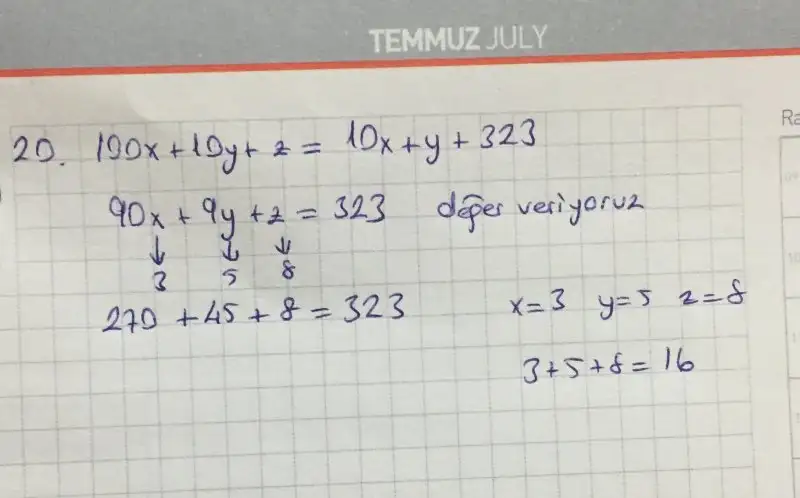 TEMMUZ JULY
20. 100x + 10y + z = 10x + y + 323
90x + 9y + z = 323 değer veriyoruz
↓ ↓ ↓
3 5 8
270 + 45 + 8 = 323 x = 3 y = 5 z = 8
3 + 5 + 8 = 16